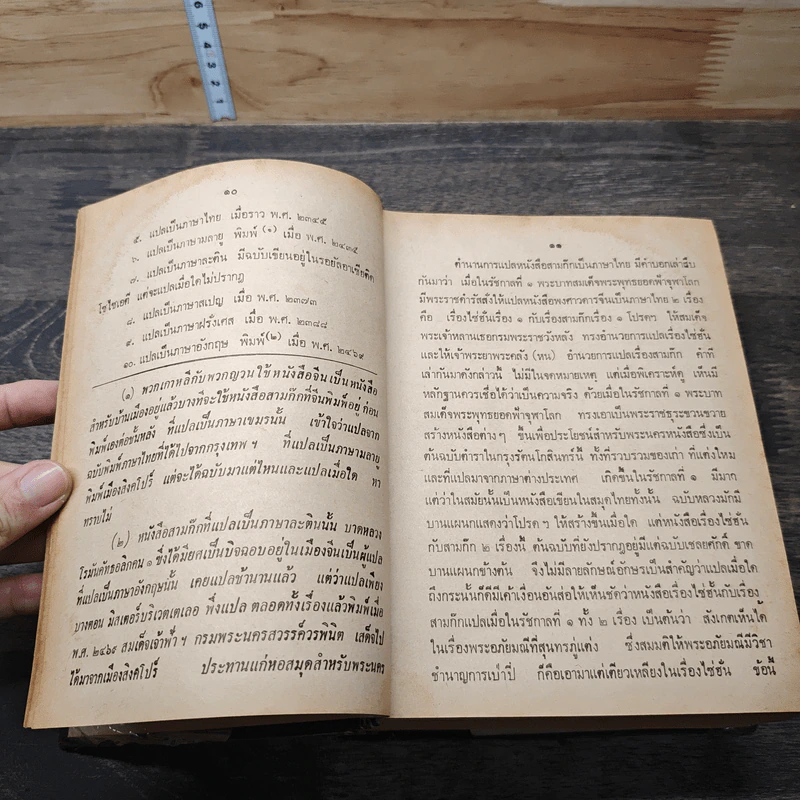 6 5 4 3 2 1
๑๐
๕. แปลเป็นภาษาไทย เมื่อราว พ.ศ. ๒๓๔๕
๖. แปลเป็นภาษามลายู พิมพ์ (๑) เมื่อ พ.ศ. ๒๔๓๕
๗. แปลเป็นภาษาละติน มีฉบับเขียนอยู่ในรอยัลอาเซียติค
โซไซเอตี แต่จะแปลเมื่อใดไม่ปรากฏ
๘. แปลเป็นภาษาสเปญ เมื่อ พ.ศ. ๒๓๗๓
๙. แปลเป็นภาษาฝรั่งเศส เมื่อ พ.ศ. ๒๓๘๘
๑๐. แปลเป็นภาษาอังกฤษ พิมพ์(๒) เมื่อ พ.ศ. ๒๔๖๙
(๑) พวกเกาหลีกับพวกญวนใช้หนังสือจีนเป็นหนังสือ
สำหรับบ้านเมืองอยู่แล้วบางทีจะใช้หนังสือสามก๊กที่จีนพิมพ์อยู่ก่อน
พิมพ์เองต่อชั้นหลัง ที่แปลเป็นภาษาเขมรนั้น เข้าใจว่าแปลจาก
ฉบับพิมพ์ภาษาไทยที่ได้ไปจากกรุงเทพ ฯ ที่แปลเป็นภาษามลายู
พิมพ์เมืองสิงคโปร์ แต่จะได้ฉบับมาแต่ไหนและแปลเมื่อใด หา
ทราบไม่
(๒) หนังสือสามก๊กที่แปลเป็นภาษาละตินนั้น บาดหลวง
โรมันคัทธอลิกคน ๑ ซึ่งได้มียศเป็นบิจฉอบอยู่ในเมืองจีนเป็นผู้แปล
ที่แปลเป็นภาษาอังกฤษนั้น เคยแปลช้านานแล้ว แต่ว่าแปลเพียง
บางตอน มิสเตอร์บริเวตเตเลอ พึ่งแปล ตลอดทั้งเรื่องแล้วพิมพ์เมื่อ
พ.ศ. ๒๔๖๙ สมเด็จเจ้าฟ้า ฯ กรมพระนครสวรรค์วรพินิต เสด็จไป
ได้มาจากเมืองสิงคโปร์ ประทานแก่หอสมุดสำหรับพระนคร
๑๑
ตำนานการแปลหนังสือสามก๊กเป็นภาษาไทย มีคำบอกเล่าสืบ
กันมาว่า เมื่อในรัชกาลที่ ๑ พระบาทสมเด็จพระพุทธยอดฟ้าจุฬาโลก
มีพระราชดำรัสสั่งให้แปลหนังสือพงศาวดารจีนเป็นภาษาไทย ๒ เรื่อง
คือ เรื่องไซ่ฮั่นเรื่อง ๑ กับเรื่องสามก๊กเรื่อง ๑ โปรดฯ ให้สมเด็จ
พระเจ้าหลานเธอกรมพระราชวังหลัง ทรงอำนวยการแปลเรื่องไซ่ฮั่น
และให้เจ้าพระยาพระคลัง (หน) อำนวยการแปลเรื่องสามก๊ก คำที่
เล่ากันมาดังกล่าวนี้ ไม่มีในจดหมายเหตุ แต่เมื่อพิเคราะห์ดู เห็นมี
หลักฐานควรเชื่อได้ว่าเป็นความจริง ด้วยเมื่อในรัชกาลที่ ๑ พระบาท
สมเด็จพระพุทธยอดฟ้าจุฬาโลก ทรงเอาเป็นพระราชธุระขวนขวาย
สร้างหนังสือต่างๆ ขึ้นเพื่อประโยชน์สำหรับพระนครหนังสือซึ่งเป็น
ต้นฉบับตำราในกรุงรัตนโกสินทร์นี้ ทั้งที่รวบรวมของเก่า ที่แต่งใหม่
และที่แปลมาจากภาษาต่างประเทศ เกิดขึ้นในรัชกาลที่ ๑ มีมาก
แต่ว่าในสมัยนั้นเป็นหนังสือเขียนในสมุดไทยทั้งนั้น ฉบับหลวงมักมี
บานแผนกแสดงว่าโปรดฯ ให้สร้างขึ้นเมื่อใด แต่หนังสือเรื่องไซ่ฮั่น
กับสามก๊ก ๒ เรื่องนี้ ต้นฉบับที่ยังปรากฏอยู่มีแต่ฉบับเชลยศักดิ์ ขาด
บานแผนกข้างต้น จึงไม่มีลายลักษณ์อักษรเป็นสำคัญว่าแปลเมื่อใด
ถึงกระนั้นก็ดีมีเค้าเงื่อนอันส่อให้เห็นชัดว่าหนังสือเรื่องไซ่ฮั่นกับเรื่อง
สามก๊กแปลเมื่อในรัชกาลที่ ๑ ทั้ง ๒ เรื่อง เป็นต้นว่า สังเกตเห็นได้
ในเรื่องพระอภัยมณีที่สุนทรภู่แต่ง ซึ่งสมมติให้พระอภัยมณีมีวิชา
ชำนาญการเป่าปี่ ก็คือเอามาแต่เตียวเหลียงในเรื่องไซ่ฮั่น ข้อนี้